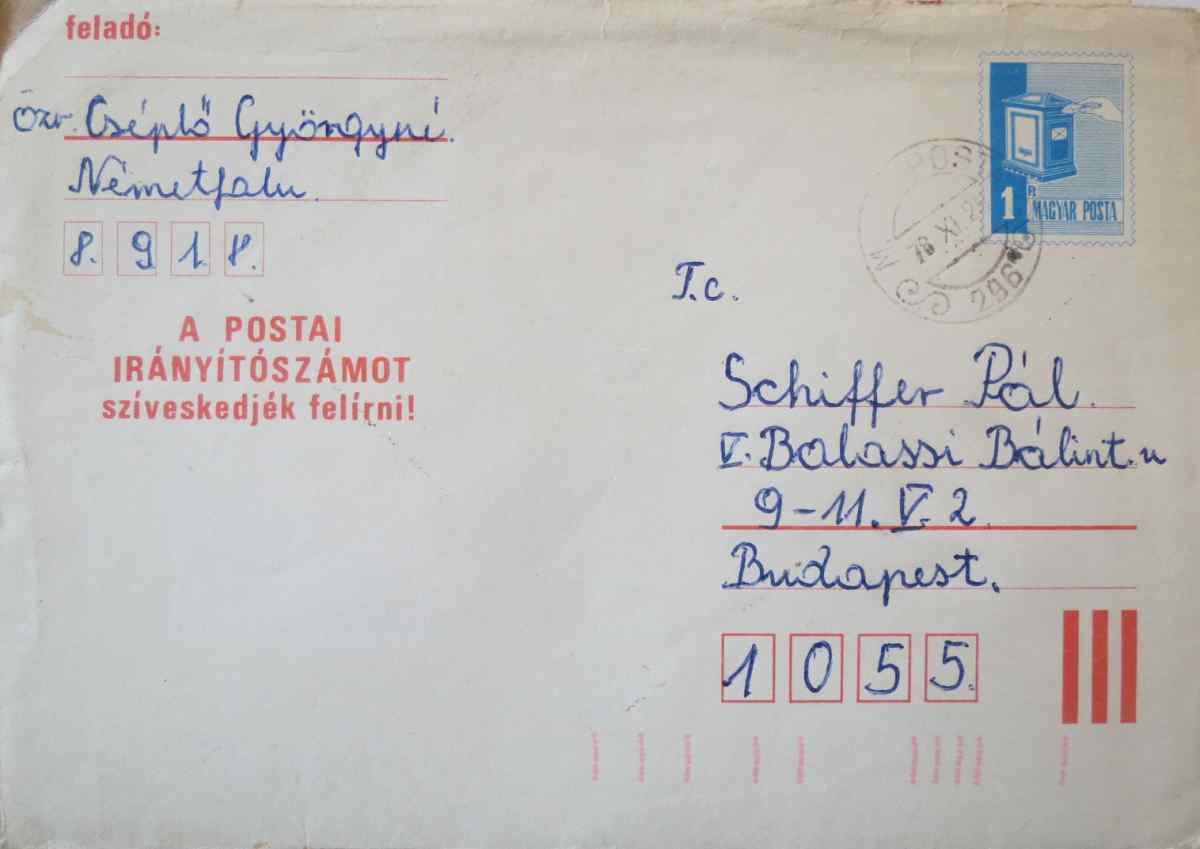 feladó:
Özv. Cséplő Györgyné.
Németfalu.
8. 9 1. 8.
A POSTAI
IRÁNYÍTÓSZÁMOT
szíveskedjék felírni!
1 MAGYAR POSTA
78 XI 2
M 296
T.c.
Schiffer Pál.
V. Balassi Bálint. u
9-11. V. 2.
Budapest.
1 0 5 5.